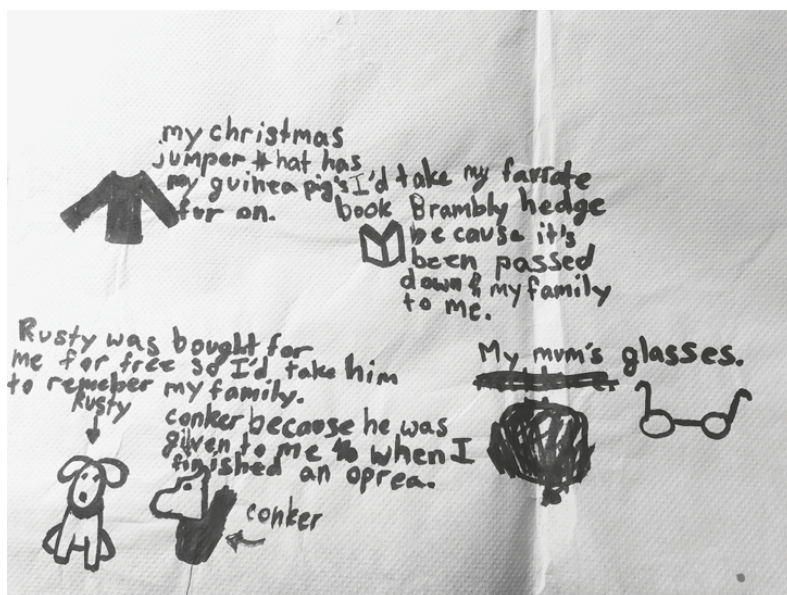 my christmas
jumper that has
my guinea pig's
fur on.
I'd take my favrate
book Brambly hedge
because it's
been passed
down my family
to me.
Rusty was bought for
me for free so I'd take him
to remeber my family.
Rusty
conker because he was
given to me when I
finished an oprea.
conker
My mum's glasses.